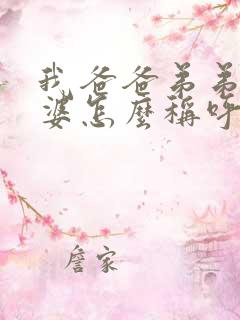 我爸爸弟弟
婆怎麼稱呼
詹家